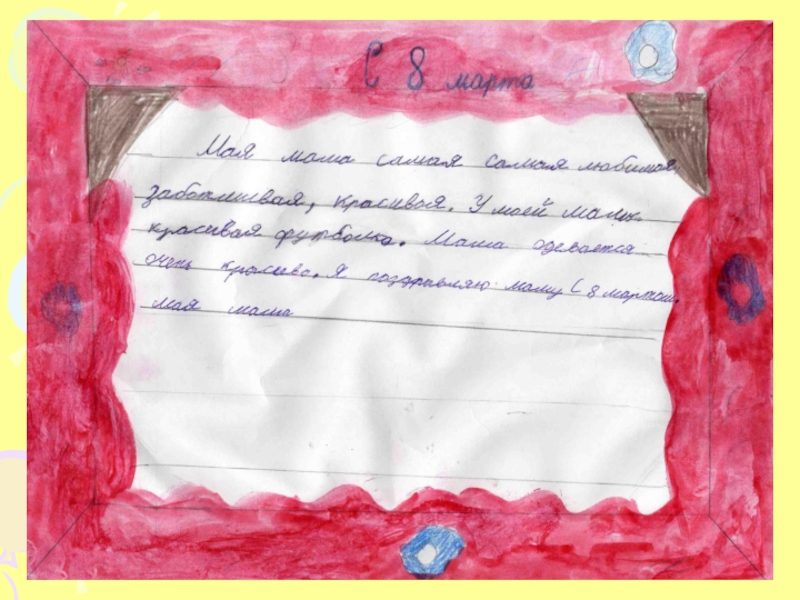 С 8 марта
Мая мама самая самая любимая,
заботливая, красивая. У моей мамы
красивая футболка. Мама одевается
очень красиво. Я поздравляю маму С 8 мартом.
мая мама